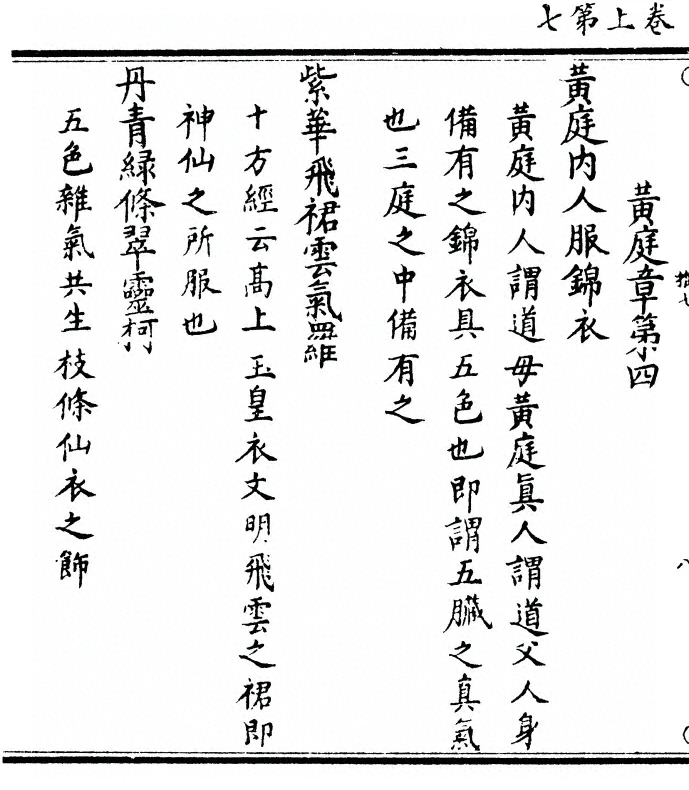 卷上第七
黃庭章第四
黃庭內人服錦衣
黃庭內人謂道母黃庭眞人謂道父人身
備有之錦衣具五色也即謂五臟之真氣
也三庭之中備有之
紫華飛裙雲氣羅
十方經云高上玉皇衣文明飛雲之裙即
神仙之所服也
丹青綠條翠靈柯
五色雜氣共生枝條仙衣之飾
八